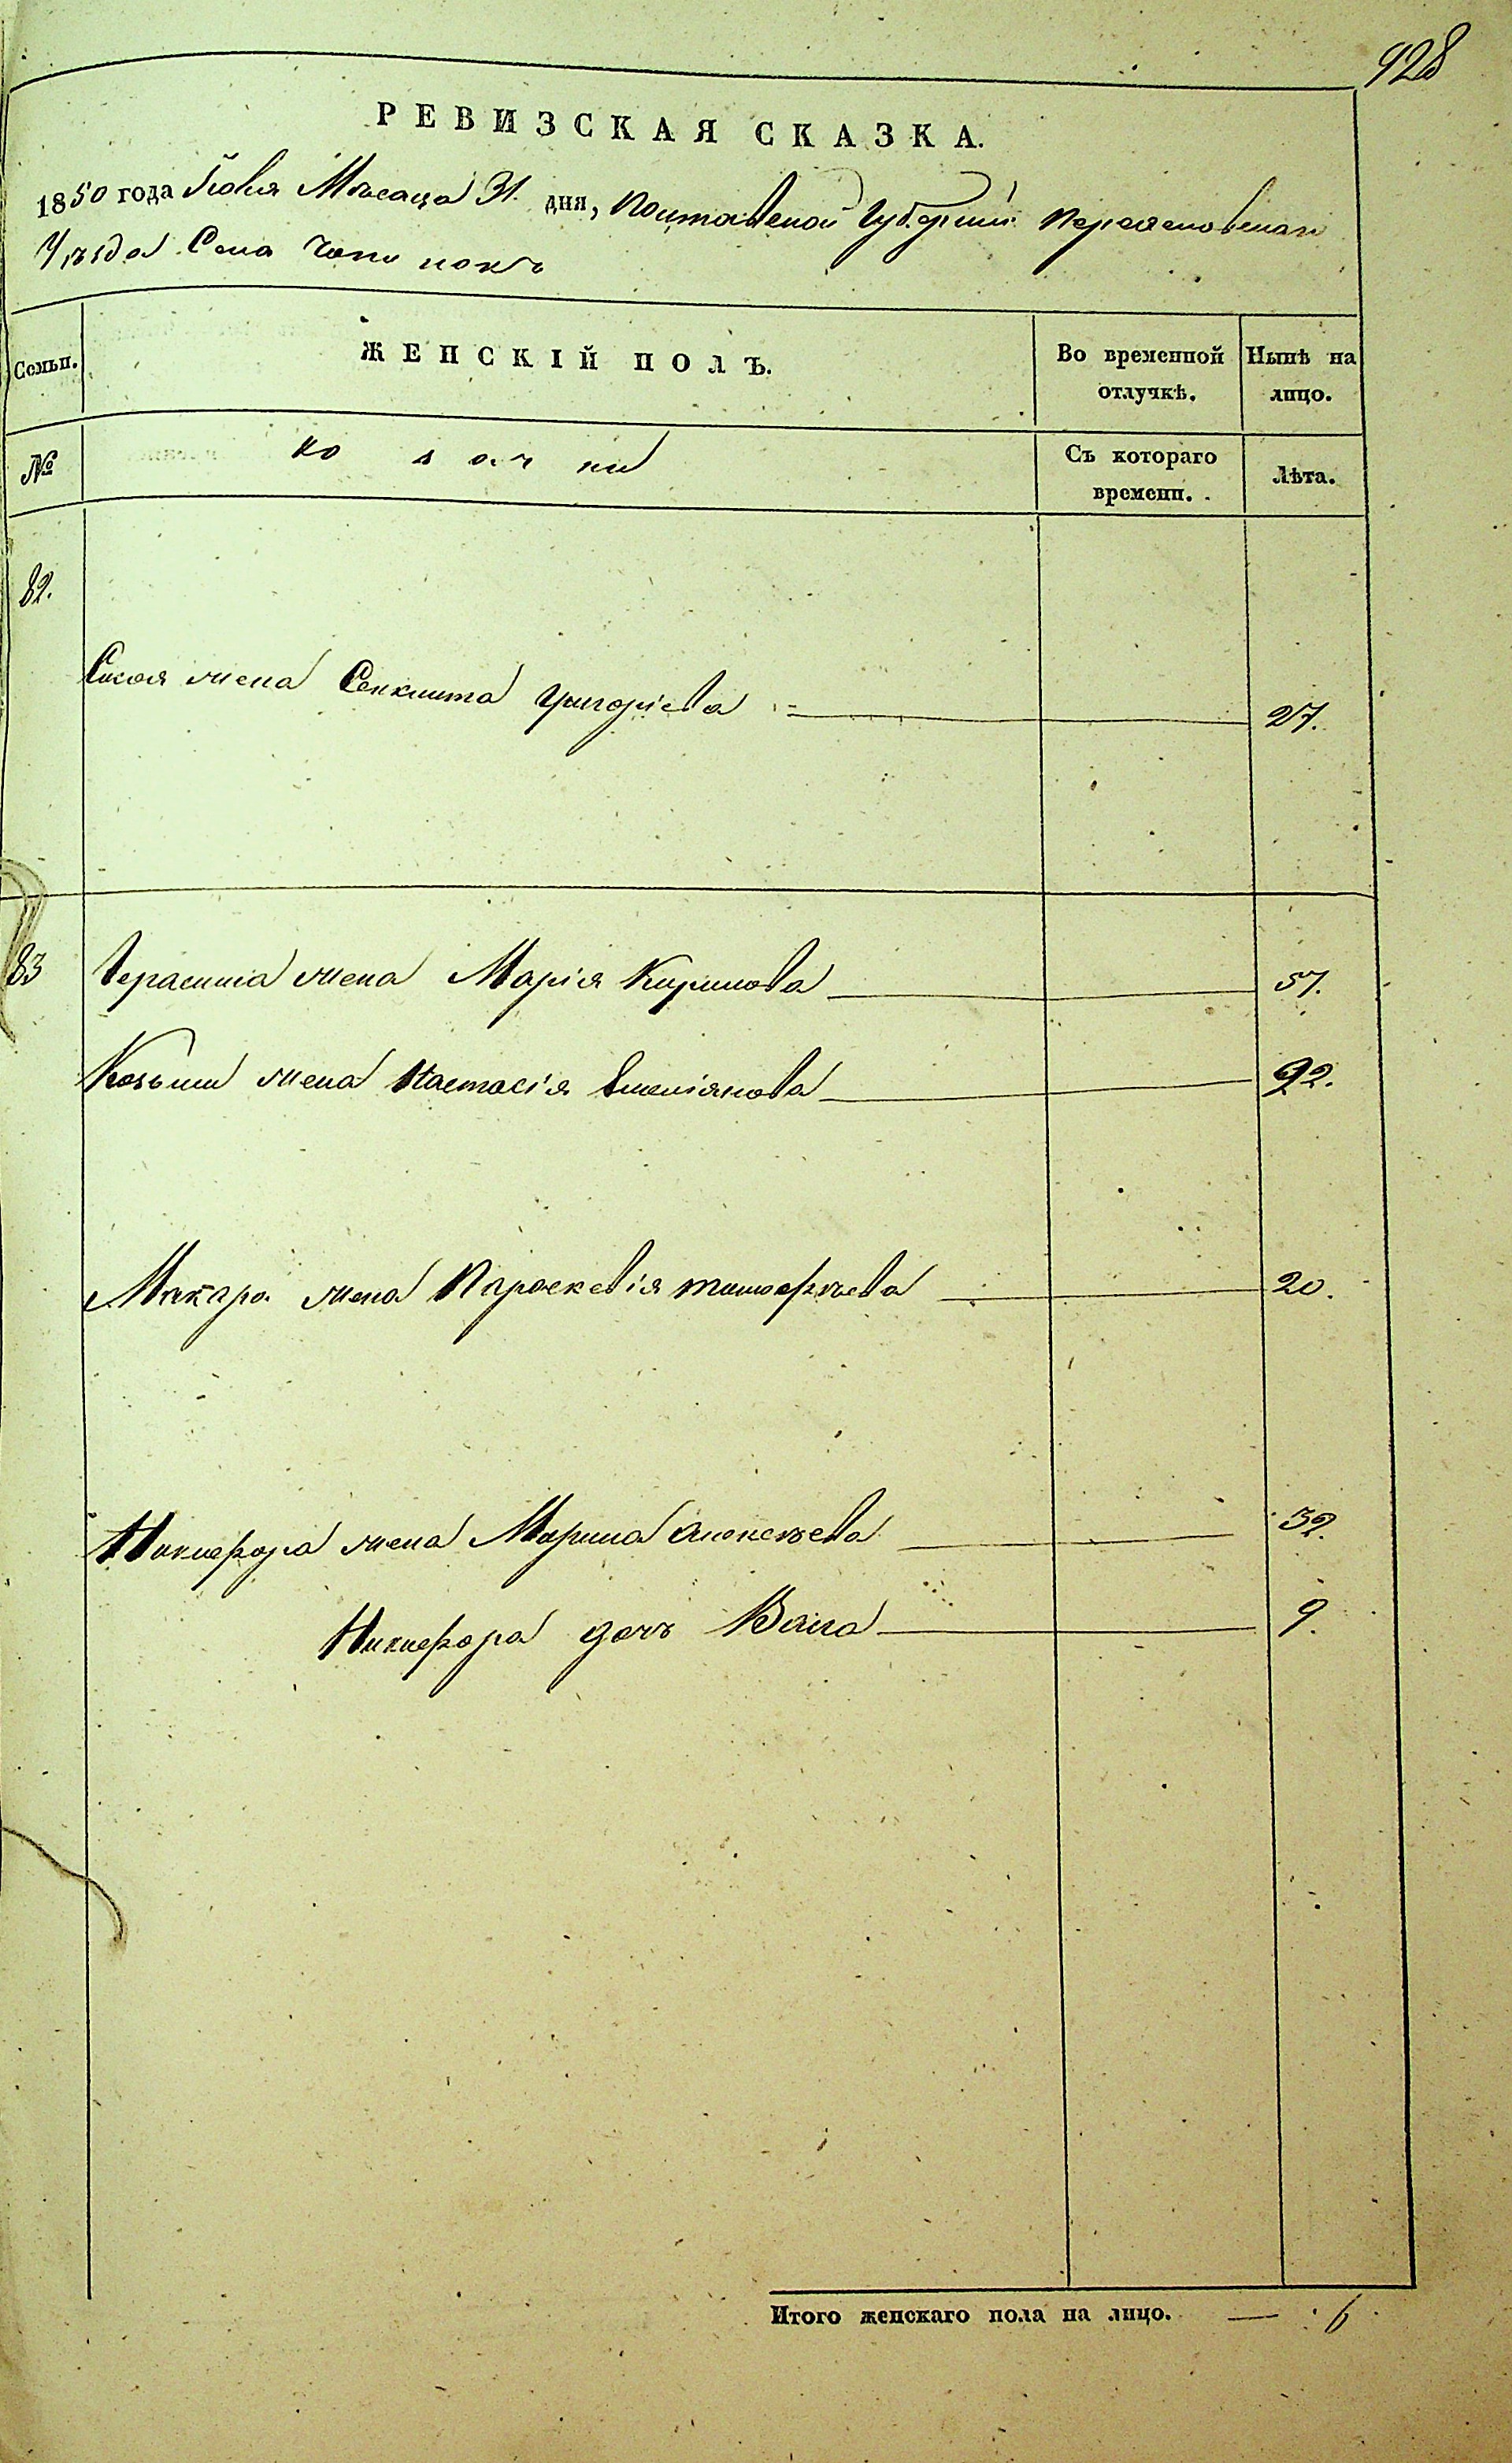 928
РЕВИЗСКАЯ СКАЗКА.
1850 года Июля Мѣсяца 31. дня, Полтавской Губерніи Переяславскаго
Уѣзда Села
Семьи. ЖЕНСКІЙ ПОЛЪ. Во временной отлучкѣ. Нынѣ на лицо.
№ козачки Съ котораго времени. Лѣта.
82.
жена Секлита Григоріева 27.
83 Герасима жена Марія Кирилова 57.
Козьмы жена Настасія Емеліянова 92.
Макара жена Параскевія Тимофѣева 20.
Никифора жена Марина Алексѣева 32.
Никифора дочь 9.
Итого женскаго пола на лицо. — 6